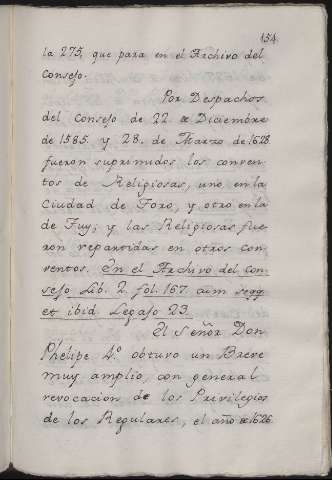 154
la 275, que para en el Archivo del
Consejo.
Por Despachos
del Consejo de 22 a Diciembre
de 1585. y 28. de Marzo de 1628
fueron suprimidos los conven-
tos de Religiosas, uno en la
Ciudad de Foro, y otro en la
de Fuy; y las Religiosas fue-
ron repartidas en otros con-
ventos. En el Archivo del con-
sejo Lib. 2. fol. 167. cum seqq
et ibid. Legajo 23.
El Señór Don
Phelipe 4.º obtuvo un Breve
muy amplio, con general
revocación de los Privilegios
de los Regulares, el año de 1626.